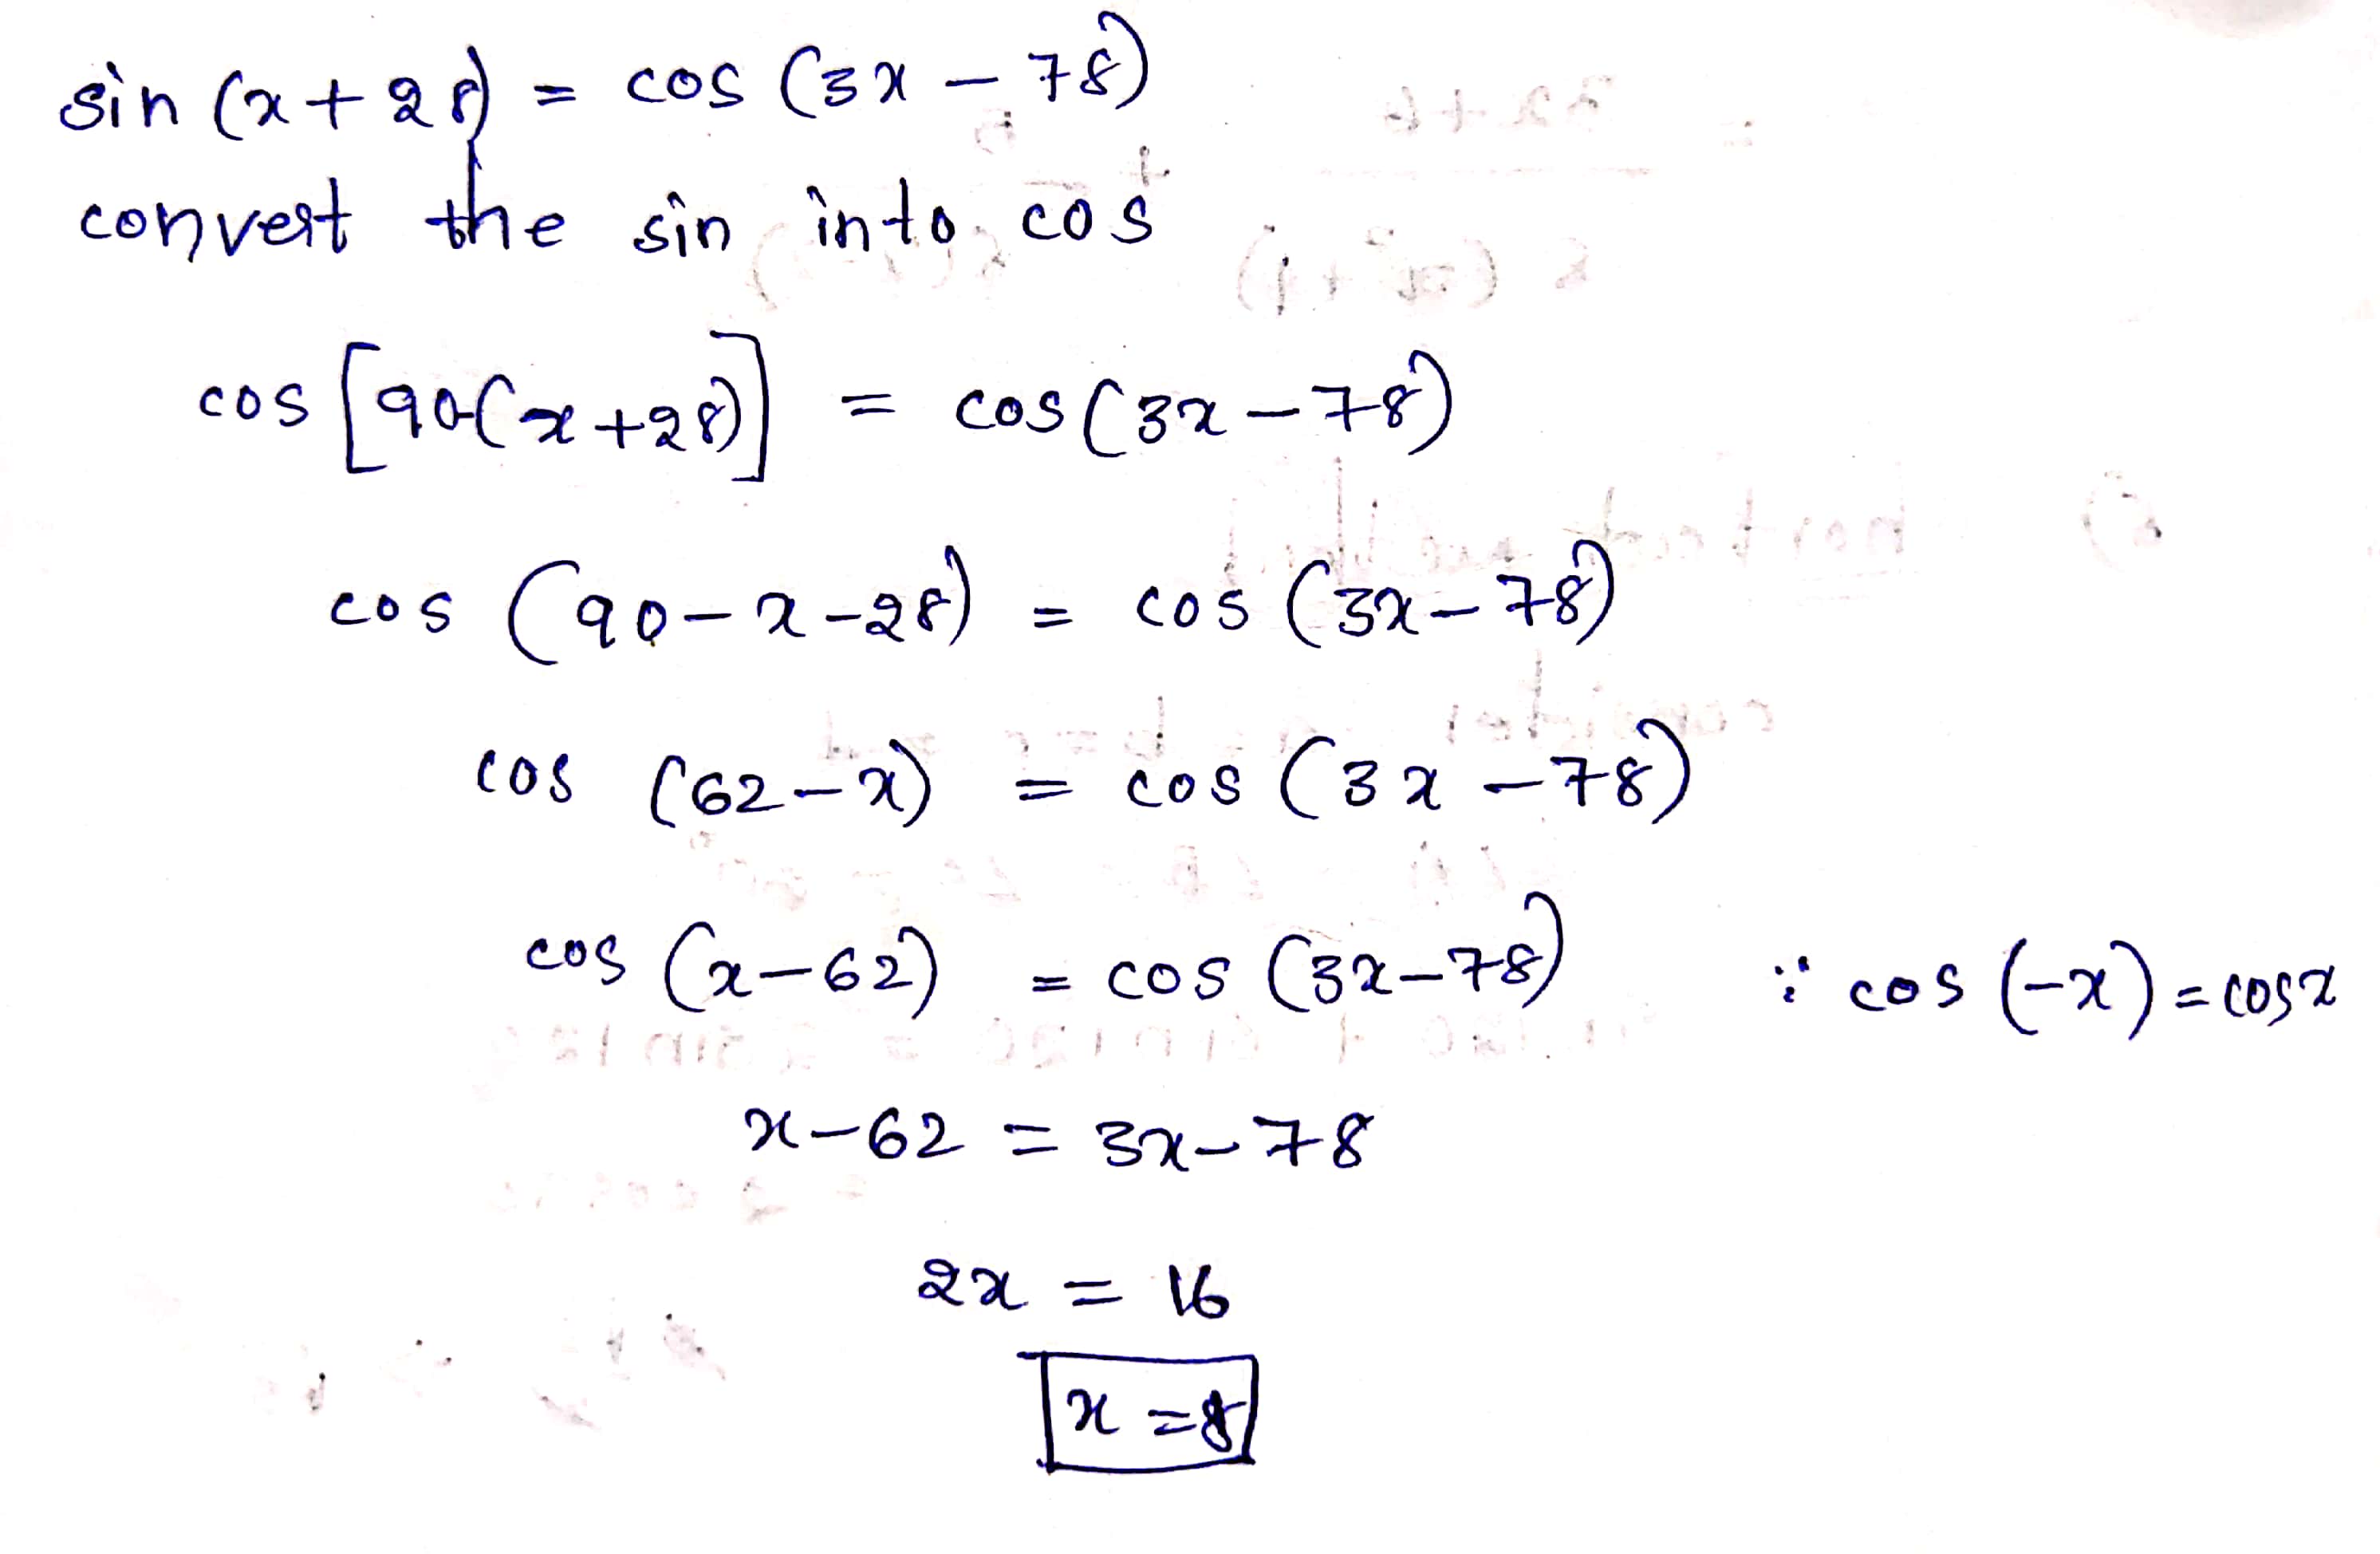 sin (x + 28) = cos (3x - 78)
convert the sin into cos
cos [90-(x+28)] = cos(3x-78)
cos (90-x-28) = cos (3x-78)
cos (62-x) = cos (3x-78)
cos (x-62) = cos (3x-78) ∵ cos (-x) = cosx
x-62 = 3x-78
2x = 16
x = 8